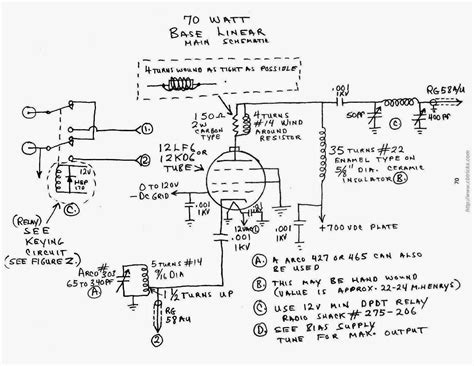 70 WATT
BASE LINEAR
MAIN SCHEMATIC
4 TURNS WOUND AS TIGHT AS POSSIBLE
150Ω
2W
CARBON
TYPE
4 TURNS
#14 WIND
AROUND
RESISTOR
.001
1KV
RG58A/U
50PF
C
400PF
1
2
12LF6
OR
12KD6
TUBE
35 TURNS #22
ENAMEL TYPE ON
5/8" DIA. CERAMIC
INSULATOR B
12V
C
(RELAY)
SEE
KEYING
CIRCUIT
(SEE FIGURE 2.)
0 TO 120V
-DC GRID
.001
1KV
12VAC
D
.001
1KV
.001
1KV
+700 VDC PLATE
ARCO #303
65 TO 340PF
A
5 TURNS #14
9/16 DIA
1 1/2 TURNS UP
RG
58A/U
2
A A ARCO 427 OR 465 CAN ALSO
BE USED
B THIS MAY BE HAND WOUND
(VALUE IS APPROX. 22-24 M.HENRYS)
C USE 12V MIN DPDT RELAY
RADIO SHACK # 275-206
D SEE BIAS SUPPLY
TUNE FOR MAX. OUTPUT
70